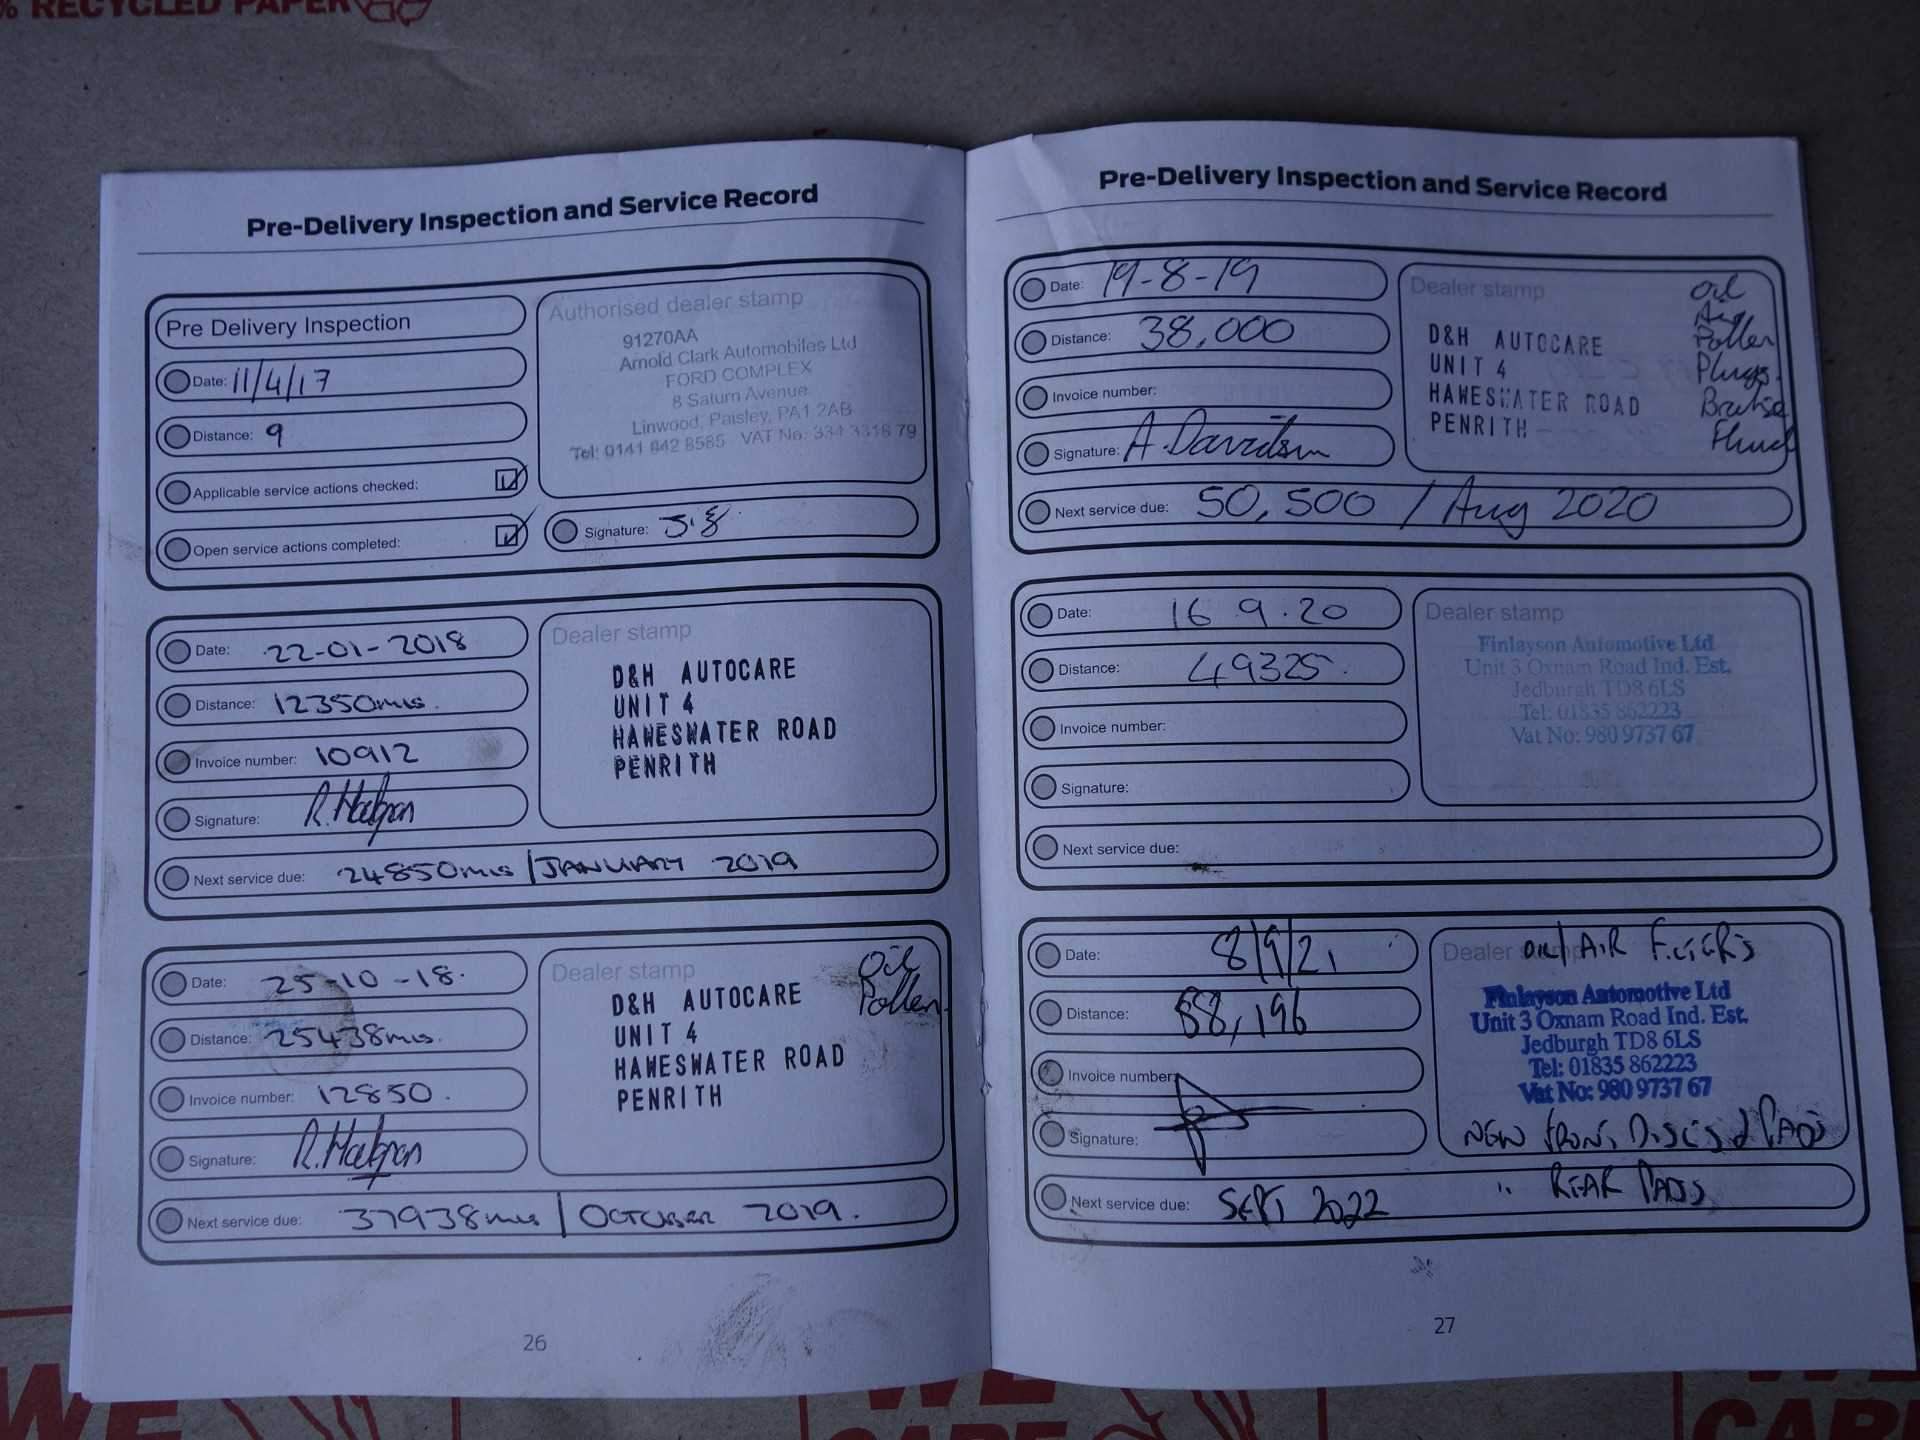 % RECYCLED PAPER
Pre-Delivery Inspection and Service Record
Pre Delivery Inspection
Date: 11/4/17
Distance: 9
Applicable service actions checked:
Open service actions completed:
Authorised dealer stamp
91270AA
Arnold Clark Automobiles Ltd
FORD COMPLEX
8 Saturn Avenue
Linwood, Paisley, PA1 2AB
Tel: 0141 842 8585 VAT No: 334 3318 79
Signature:
Date: 22-01-2018
Distance: 12350mls.
Invoice number: 10912
Signature: R.Hodgson
Next service due: 24850mls / JANUARY 2019
Dealer stamp
D&H AUTOCARE
UNIT 4
HAWESWATER ROAD
PENRITH
Date: 25-10-18.
Distance: 25438mls.
Invoice number: 12850.
Signature: R.Hodgson
Next service due: 37938mls / OCTOBER 2019.
Dealer stamp
Oil
Pollen
D&H AUTOCARE
UNIT 4
HAWESWATER ROAD
PENRITH
26
Pre-Delivery Inspection and Service Record
Date: 19-8-19
Distance: 38,000
Invoice number:
Signature: A.Davidson
Next service due: 50,500 / Aug 2020
Dealer stamp
D&H AUTOCARE
UNIT 4
HAWESWATER ROAD
PENRITH
Oil
Air
Pollen
Plugs.
Brake
Fluid
Date: 16 9.20
Distance: 49325.
Invoice number:
Signature:
Next service due:
Dealer stamp
Finlayson Automotive Ltd
Unit 3 Oxnam Road Ind. Est.
Jedburgh TD8 6LS
Tel: 01835 862223
Vat No: 980 9737 67
Date: 8/9/21
Distance: 58,196
Invoice number:
Signature:
Next service due: SEPT 2022
Dealer stamp
OIL/AIR FILTERS
Finlayson Automotive Ltd
Unit 3 Oxnam Road Ind. Est.
Jedburgh TD8 6LS
Tel: 01835 862223
Vat No: 980 9737 67
NEW FRONT DISCS & PADS
" REAR PADS
27
WE
WE
CARE
WE
CARE